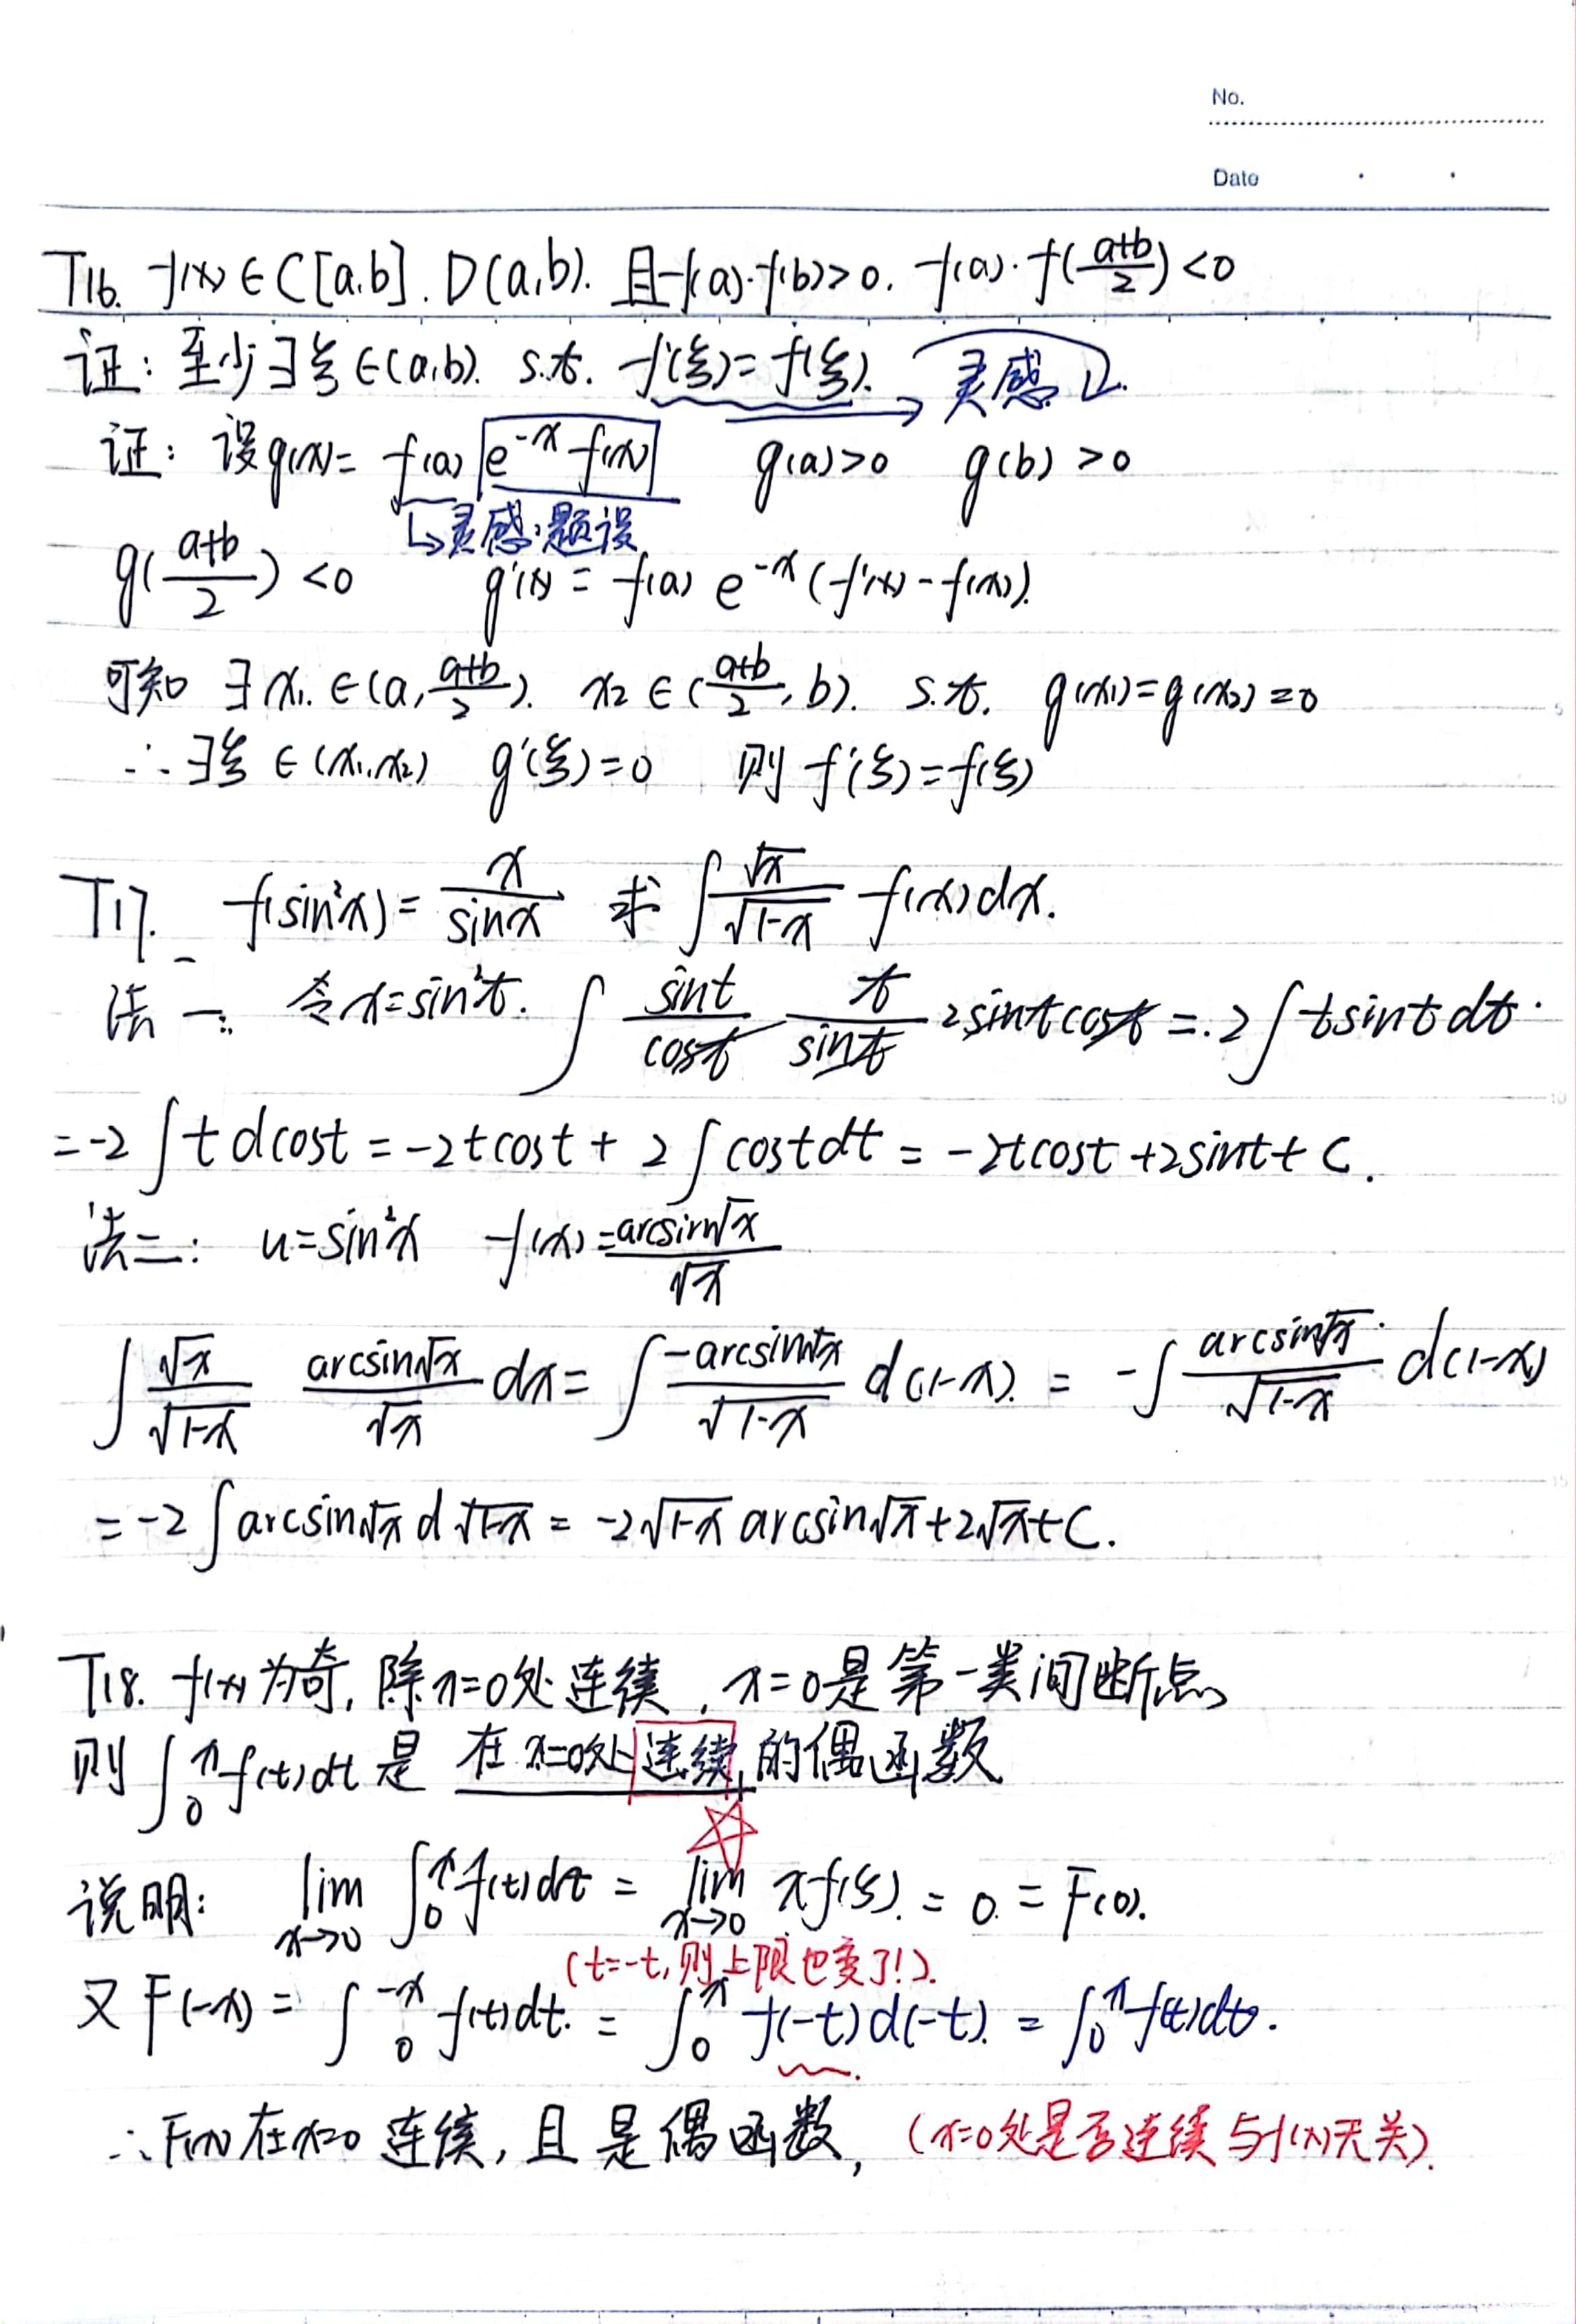 No.
Date
T16. f(x)∈C[a,b]. D(a,b). 且f(a)·f(b)>0. f(a)·f(\frac{a+b}{2})<0
证: 至少∃ξ∈(a,b). s.t. f'(ξ)=f(ξ). → 灵感
证: 设g(x)= f(a) e^{-x} f(x) g(a)>0 g(b)>0
↳灵感:题设
g(\frac{a+b}{2})<0 g'(x)=f(a) e^{-x}(f'(x)-f(x)).
可知 ∃x₁.∈(a,\frac{a+b}{2}). x₂∈(\frac{a+b}{2},b). s.t. g(x₁)=g(x₂)=0
∴∃ξ∈(x₁,x₂) g'(ξ)=0 则 f'(ξ)=f(ξ)
T17. f(sin²x)=\frac{x}{sinx} 求 ∫\frac{√x}{√(1-x)} f(x)dx.
法一: 令x=sin²t. ∫ \frac{sint}{cost} \frac{t}{sint} 2sintcost = 2∫tsint dt.
=-2∫t dcost = -2tcost + 2∫costdt = -2tcost+2sint+C.
法二: u=sin²x f(x)=\frac{arcsin√x}{√x}
∫\frac{√x}{√(1-x)} \frac{arcsin√x}{√x} dx = ∫\frac{-arcsin√x}{√(1-x)} d(1-x). = -∫\frac{arcsin√x}{√(1-x)} d(1-x)
=-2∫arcsin√x d√(1-x) = -2√(1-x) arcsin√x+2√x+C.
T18. f(x)为奇, 除x=0处连续, x=0是第一类间断点
则∫₀ˣf(t)dt是 在x=0处连续 的偶函数
说明: lim_{x→0} ∫₀ˣf(t)dt = lim_{x→0} xf(ξ). = 0 = F(0).
(t=-t,则上限也变了!).
又F(-x)= ∫₀^{-x} f(t)dt. = ∫₀ˣ f(-t)d(-t). = ∫₀ˣf(t)dt.
∴F(x)在x=0 连续, 且是偶函数, (x=0处是否连续与f(x)无关).